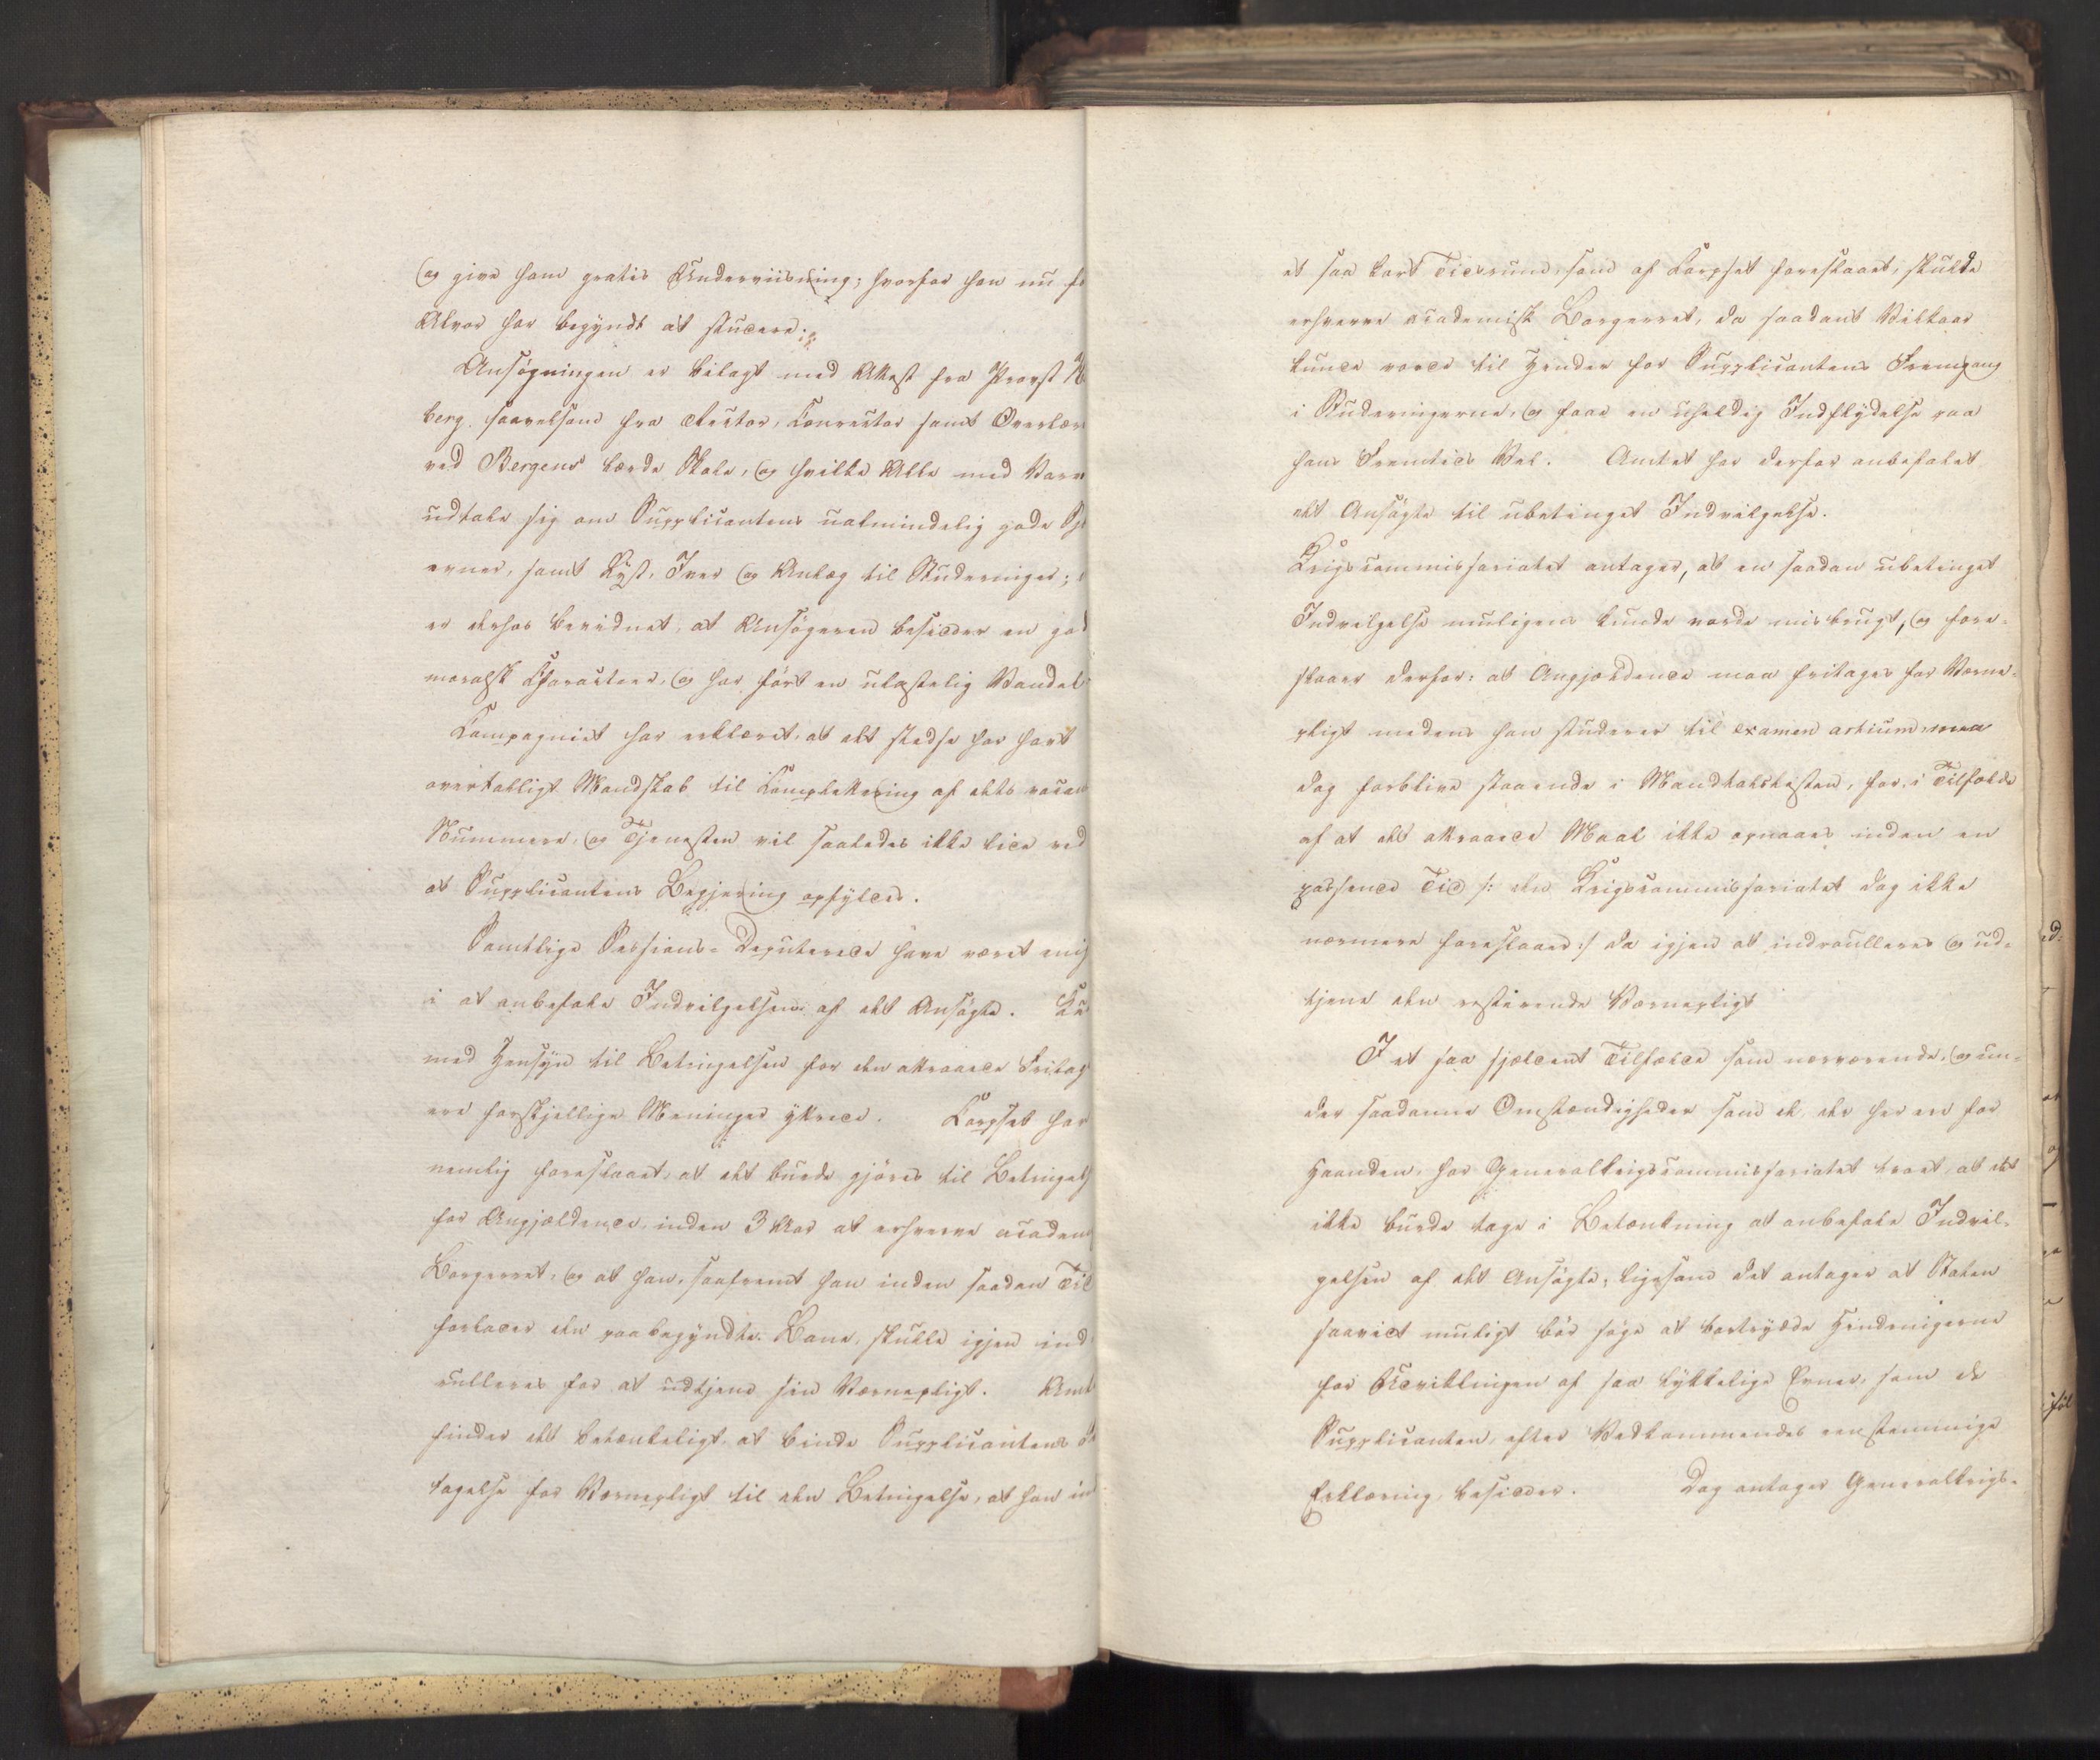 og give ham gratis Underviisning; hvorfor han nu fo
Alvor har begyndt at studere.
Ansögningen er bilagt med Attest fra Provst
berg, saavelsom fra Rector, Conrector samt Overlær
ved Bergens lærde Skole, og hvilke Alle med Varm
udtale sig om Supplicantens ualmindelig gode
evner, samt Lyst, Iver og Anlæg til Studeringer;
er derhos bevidnet, at Ansögeren besidder en god
moralsk Characteer, og har fört en ulastelig Vandel
Compagniet har erklæret, at det stedse har havt
overtalligt Mandskab til Complettering af dets vacan
Nummere, og Tjenesten vil saaledes ikke lide ved
at Supplicantens Begjering opfyldes.
Samtlige Sessions-Deputerede have været enig
i at anbefale Indvilgelsen af det Ansögte. Ku
med Hensyn til Betingelsen for den attraaede Fritag
ere forskjellige Meninger yttrede. Corpset har
nemlig foreslaaet, at det burde gjöres til Betingels
for Angjældende, inden 3 Aar at erhverve academ
Borgerret, og at han, saafremt han inden saadan Tid
forlader den paabegyndte Bane, skulde igjen ind
rulleres for at udtjene sin Værnepligt. Amt
finder det betænkeligt, at binde Supplicantens
tagelse for Værnepligt til den Betingelse, at han in
et saa kort Tidsrum, som af Corpset foreslaaet, skulde
erhverve academisk Borgerret, da saadant Vilkaar
kunde være til Hinder for Supplicantens Fremgang
i Studeringerne, og faae en uheldig Indflydelse paa
hans Fremtids Vel. Amtet har derfor anbefalet
det Ansögte til ubetinget Indvilgelse.
Krigscommissariatet antager, at en saadan ubetinget
Indvilgelse muligens kunde vorde misbrugt, og fore-
slaaer derfor: at Angjældende maa fritages for Værne-
pligt medens han studerer til examen artium, maa
dog forblive staaende i Mandtalslisten, for, i Tilfælde
af at det attraaede Maal ikke opnaaes inden en
passende Tid /: den Krigscommissariatet dog ikke
nærmere foreslaaer :/ da igjen at indroulleres og ud-
tjene den resterende Værnepligt
I et saa sjældent Tilfælde som nærværende, og un-
der saadanne Omstændigheder som de, der her ere for
Haanden, har Generalkrigscommissariatet troet, at det
ikke burde tage i Betænkning at anbefale Indvil-
gelsen af det Ansögte, ligesom det antager at Staten
saavidt muligt bör söge at bortrydde Hindringerne
for Udviklingen af saa lykkelige Evner, som de
Supplicanten, efter Vedkommendes eenstemmige
Erklæring, besidder. Dog antager Generalkrigs-